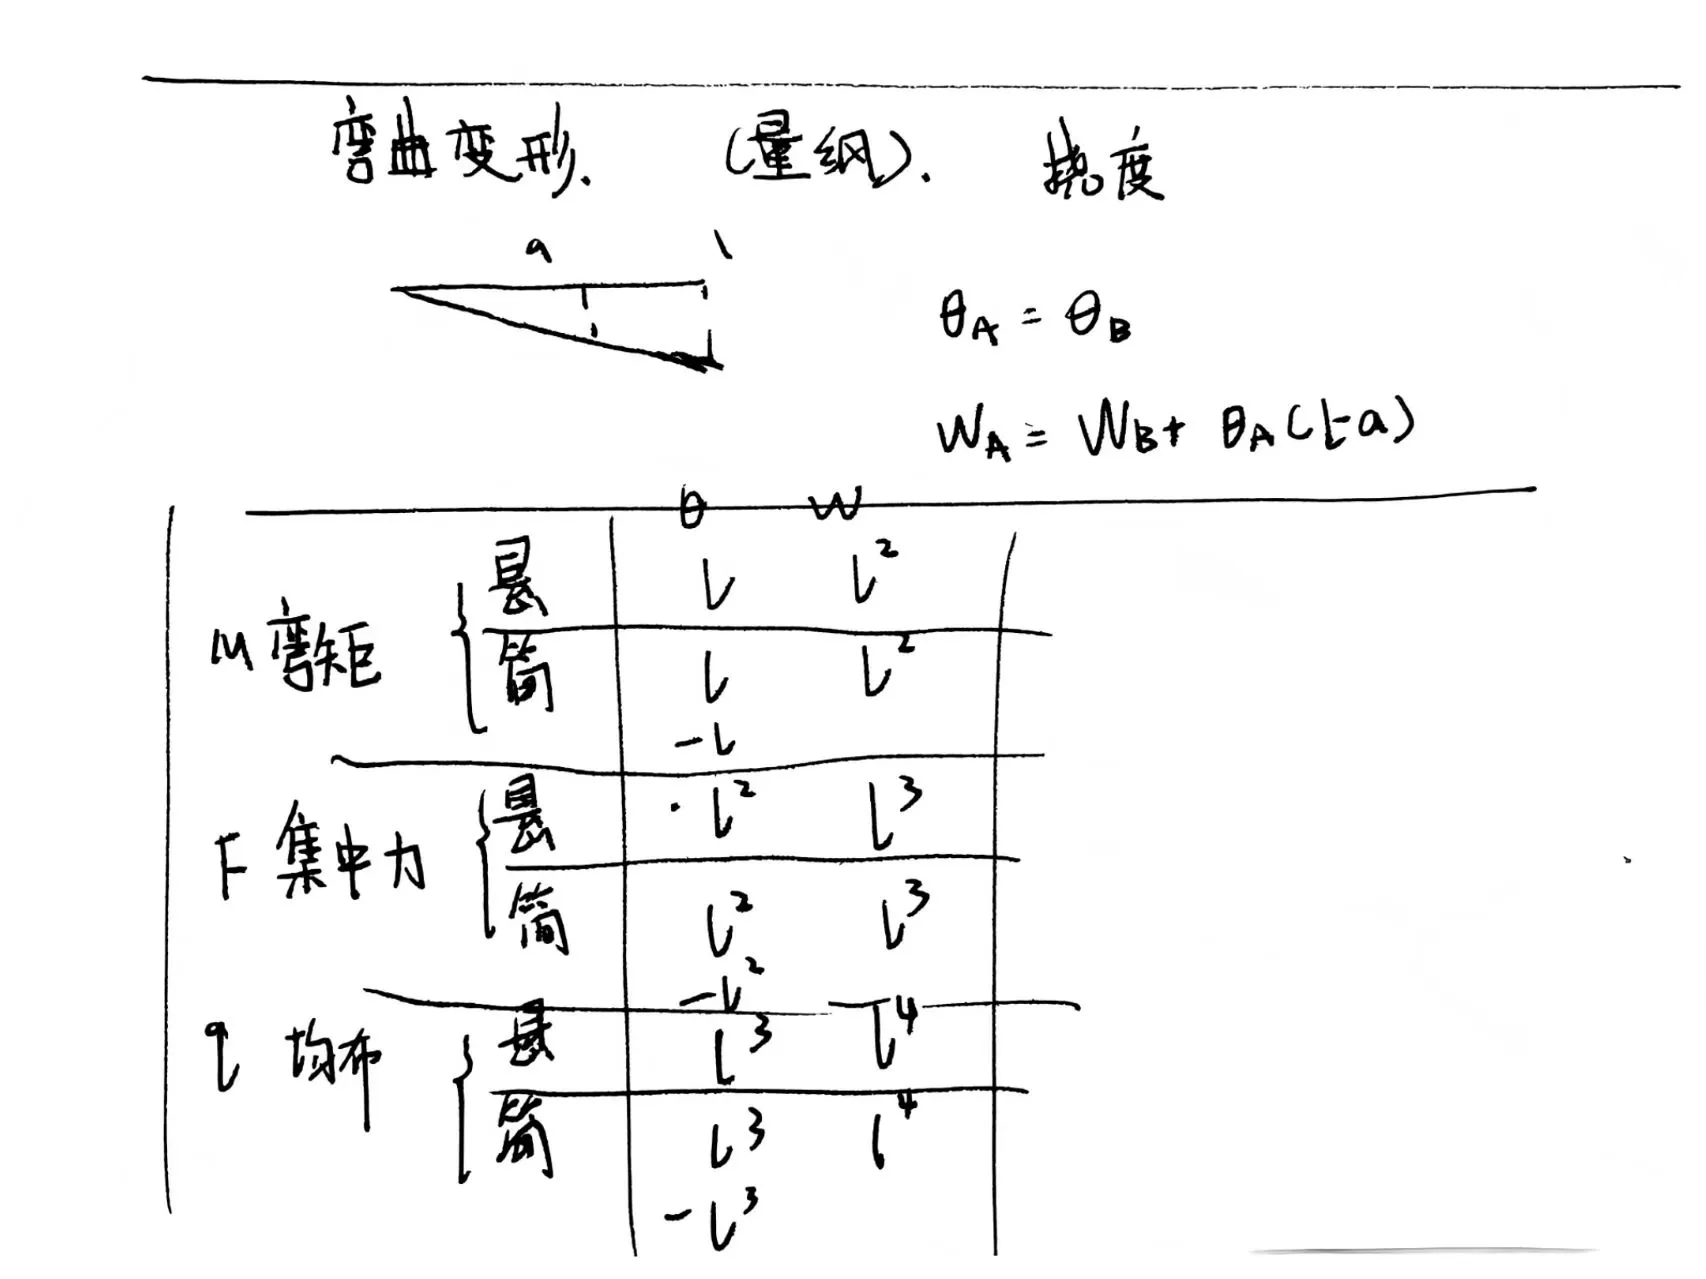 弯曲变形. (量纲). 挠度
a l
θA = θB
WA = WB + θA(l-a)
θ W
M 弯矩 { 悬 l l²
简 l l²
-l
F 集中力 { 悬 · l² l³
简 l² l³
-l²
q 均布 { 悬 l³ l⁴
简 l³ l⁴
-l³